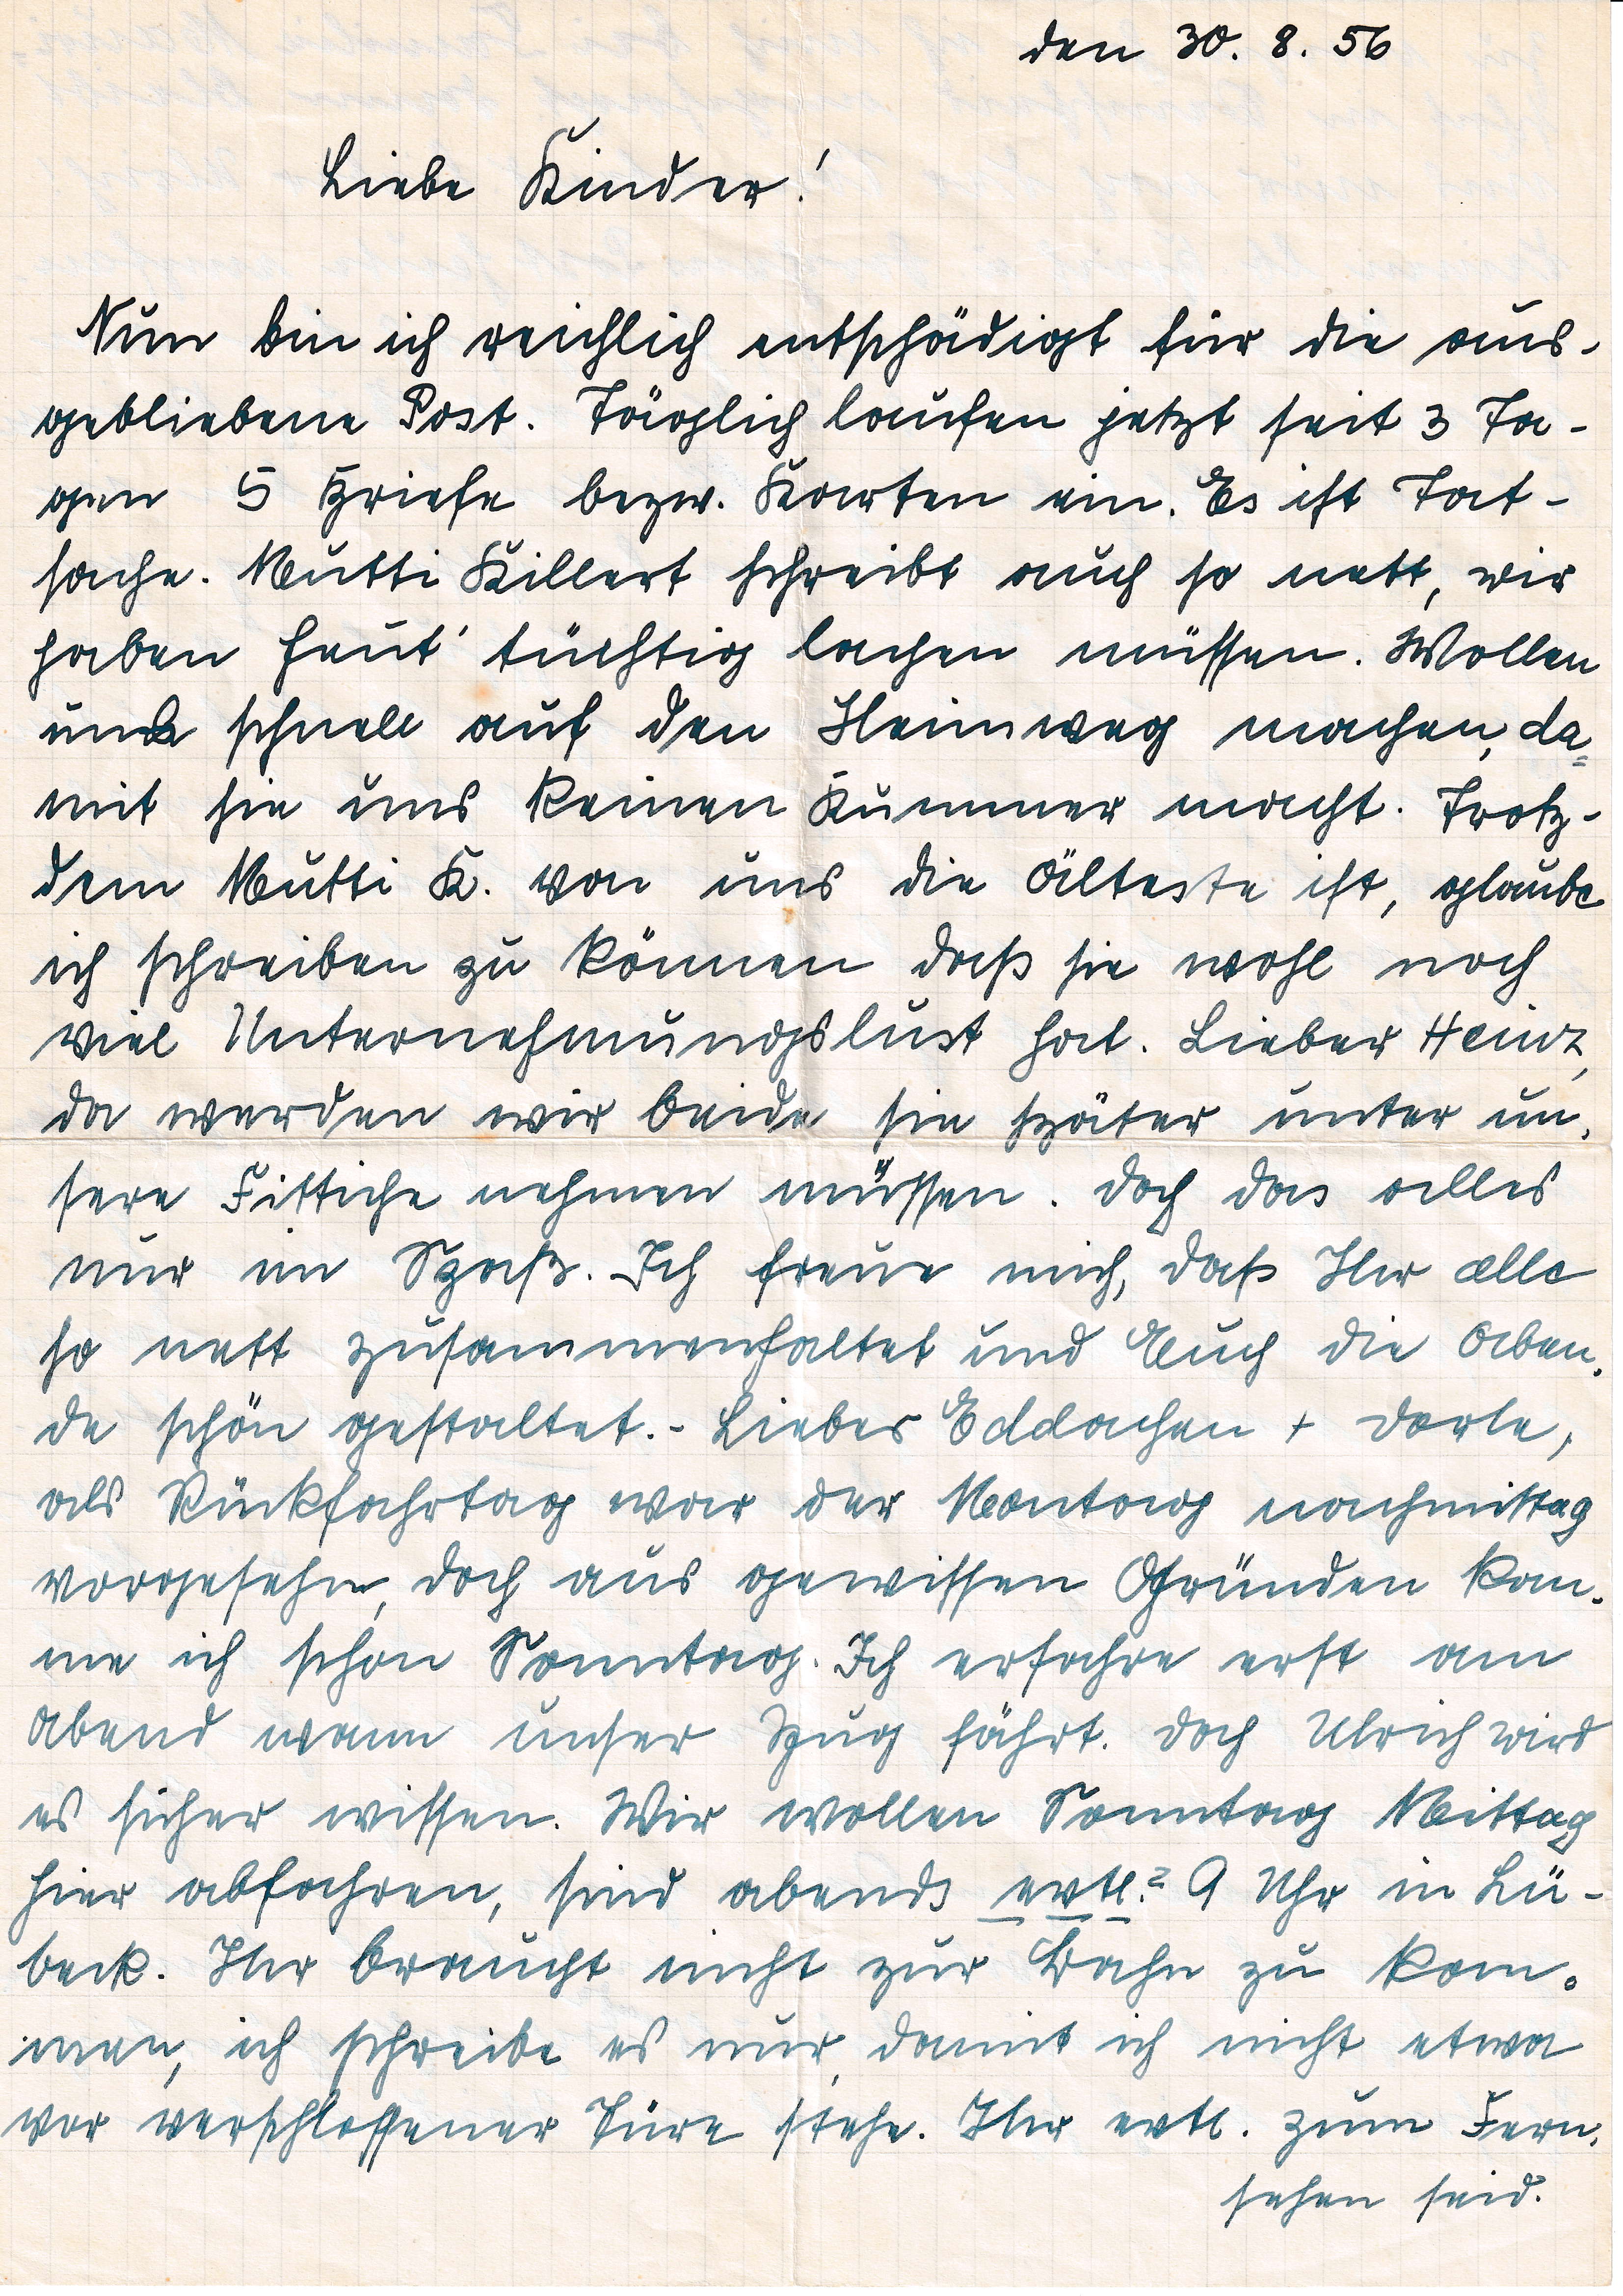 den 30. 8. 56
Liebe Kinder!
Nun bin ich reichlich entschädigt für die aus-
gebliebene Post. Täglich laufen jetzt seit 3 Ta-
gen 5 Briefe bezw. Karten ein. Es ist Tat-
sache. Mutti Killert schreibt auch so nett, wir
haben heut' tüchtig lachen müssen. Wollen
uns schnell auf den Heimweg machen, da=
mit sie uns keinen Kummer macht. Trotz-
dem Mutti K. von uns die Älteste ist, glaube
ich schreiben zu können daß sie wohl noch
viel Unternehmungslust hat. Lieber Heinz,
da werden wir beide sie später unter un-
sere Fittiche nehmen müssen. Doch das alles
nur im Spaß. Ich freue mich, daß Ihr alle
so nett zusammenhaltet und Euch die Aben-
de schön gestaltet.- Liebes Eddachen + Dorle,
als Rückfahrtag war der Montag nachmittag
vorgesehn, doch aus gewissen Gründen kom-
me ich schon Sonntag. Ich erfahre erst am
Abend wann unser Zug fährt. Doch Ulrich wird
es sicher wissen. Wir wollen Sonntag Mittag
hier abfahren, sind abends evtl.? 9 Uhr in Lü-
beck. Ihr braucht nicht zur Bahn zu kom-
men, ich schreibe es nur, damit ich nicht etwa
vor verschlossener Türe stehe. Ihr evtl. zum Fern-
sehen seid.